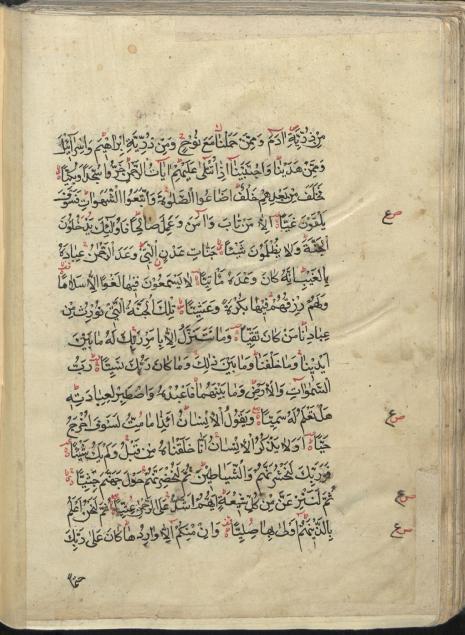 من ذرية ادم وممن حملنا مع نوح ومن ذرية ابراهيم واسرائيل
وممن هدينا واجتبينا اذا تتلى عليهم ايات الرحمن خروا سجدا وبكيا
فخلف من بعدهم خلف اضاعوا الصلوة واتبعوا الشهوات فسوف
يلقون غيا الا من تاب وامن وعمل صالحا فاولئك يدخلون
الجنة ولا يظلمون شيئا جنات عدن التي وعد الرحمن عباده
بالغيب انه كان وعده ماتيا لا يسمعون فيها لغوا الا سلاما
ولهم رزقهم فيها بكرة وعشيا تلك الجنة التي نورث من
عبادنا من كان تقيا وما نتنزل الا بامر ربك له ما بين
ايدينا وما خلفنا وما بين ذلك وما كان ربك نسيا رب
السموات والارض وما بينهما فاعبده واصطبر لعبادته
هل تعلم له سميا ويقول الانسان ائذا ما مت لسوف اخرج
حيا اولا يذكر الانسان انا خلقناه من قبل ولم يك شيئا
فوربك لنحشرنهم والشياطين ثم لنحضرنهم حول جهنم جثيا
ثم لننزعن من كل شيعة ايهم اشد على الرحمن عتيا ثم لنحن اعلم
بالذين هم اولى بها صليا وان منكم الا واردها كان على ربك
حتما